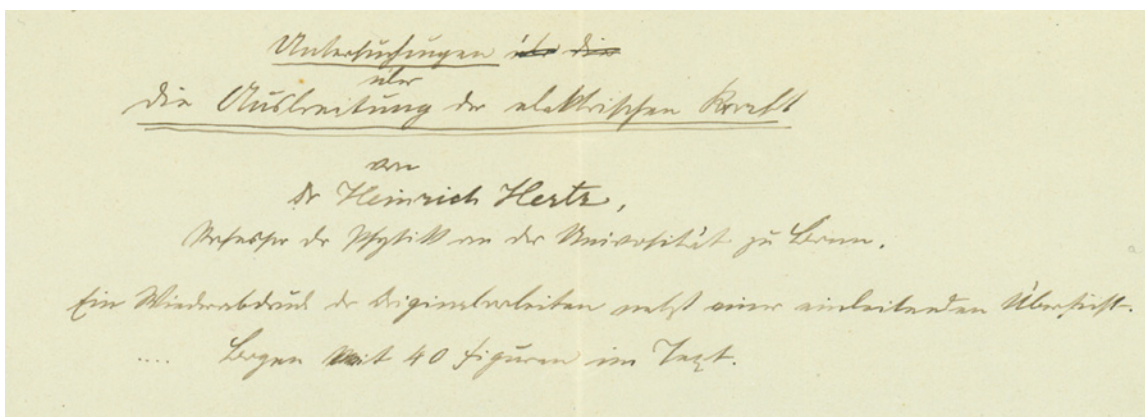 Untersuchungen über die
über
die Ausbreitung der elektrischen Kraft
von
Dr Heinrich Hertz,
Professor der Physik an der Universität zu Bonn.
Ein Wiederabdruck der Originalarbeiten nebst einer einleitenden Übersicht.
.... Bogen mit 40 Figuren im Text.